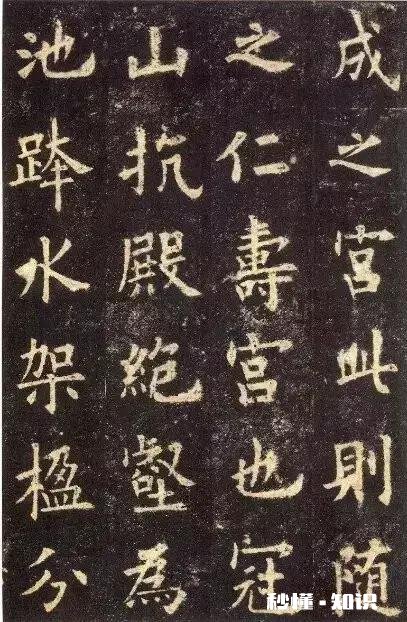 成之宮此則随
之仁壽宮也冠
山抗殿絶壑為
池跨水架楹分
秒懂·知识